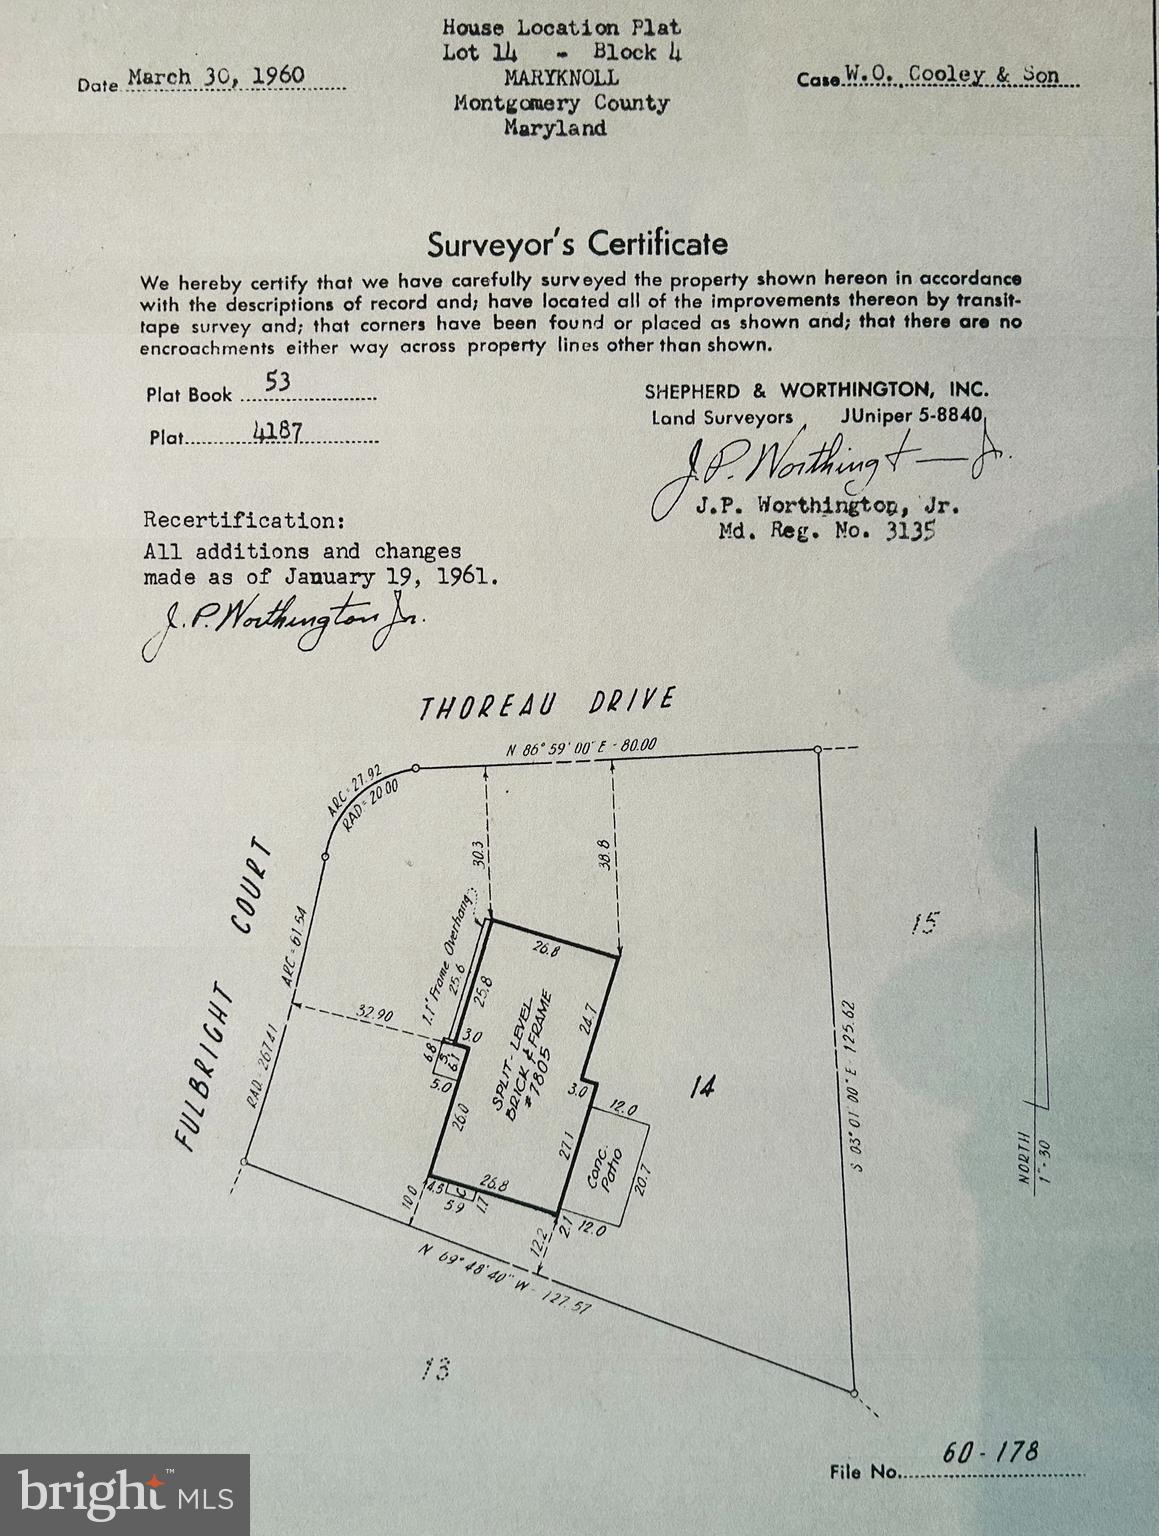 House Location Plat
Lot 14 - Block 4
MARYKNOLL
Montgomery County
Maryland
Date March 30, 1960
Case W.O. Cooley & Son
Surveyor's Certificate
We hereby certify that we have carefully surveyed the property shown hereon in accordance
with the descriptions of record and; have located all of the improvements thereon by transit-
tape survey and; that corners have been found or placed as shown and; that there are no
encroachments either way across property lines other than shown.
Plat Book 53
Plat 4187
SHEPHERD & WORTHINGTON, INC.
Land Surveyors JUniper 5-8840
J.P. Worthington Jr.
J.P. Worthington, Jr.
Md. Reg. No. 3135
Recertification:
All additions and changes
made as of January 19, 1961.
J.P. Worthington Jr.
THOREAU DRIVE
N 86° 59' 00" E - 80.00
ARC = 27.92
RAD = 20.00
FULBRIGHT COURT
ARC = 61.54
RAD = 267.41
30.3
38.8
1.1' Frame Overhang
25.6
25.8
26.8
32.90
3.0
24.7
SPLIT-LEVEL
BRICK & FRAME
#7805
6.8
6.1
5.0
26.0
3.0
12.0
27.1
Conc.
Patio
20.7
14
15
S 03° 01' 00" E - 125.62
NORTH
1"=30
10.0
4.5
5.9
1.7
26.8
12.2
2.1
12.0
N 69° 48' 40" W - 127.57
13
File No. 60-178
bright™ MLS